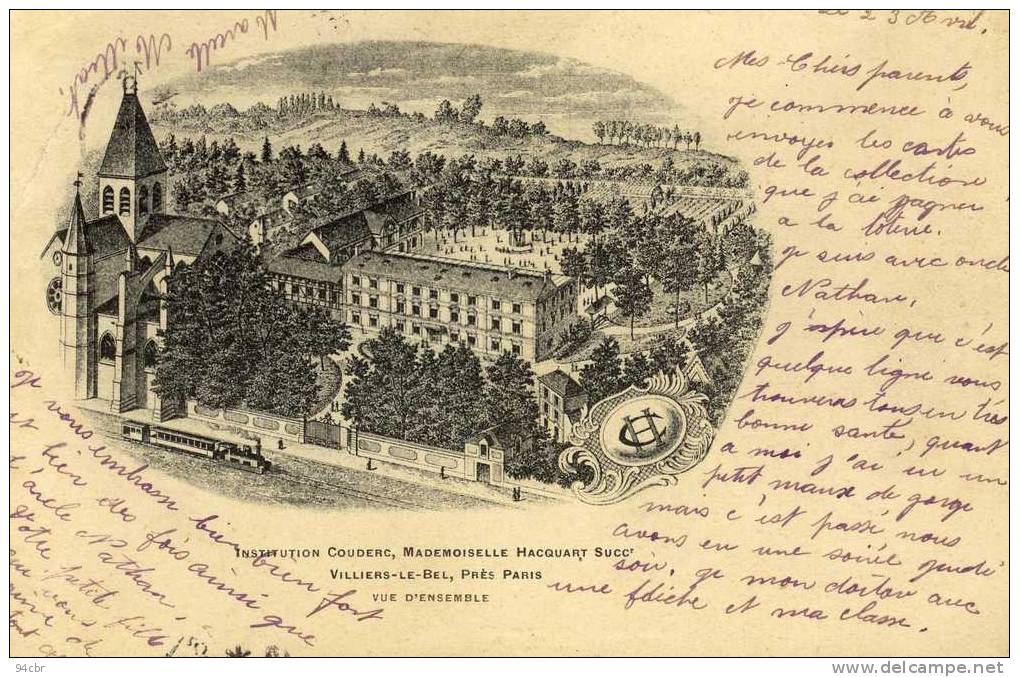 Le 23 Avril.
Mes Chers parents,
je commence à vous
envoyer les cartes
de la collection
que j'ai gagner
a la loterie.
je suis avec oncle
Nathan.
j'espère que c'est
quelque ligne vous
trouveras tous en très
bonne santé, quant
a moi j'ai eu un
petit maux de gorge
mais c'est passé, nous
avons eu une soirée jeudi
soir, je mon
une et ma classe.
je vous embrasse bien bien fort
et bien des fois ainsi que
l'oncle Nathan
votre petite fille
vous
de
INSTITUTION COUDERC, MADEMOISELLE HACQUART SUCCr
VILLIERS-LE-BEL, PRÈS PARIS
VUE D'ENSEMBLE
94cbr
www.delcampe.net